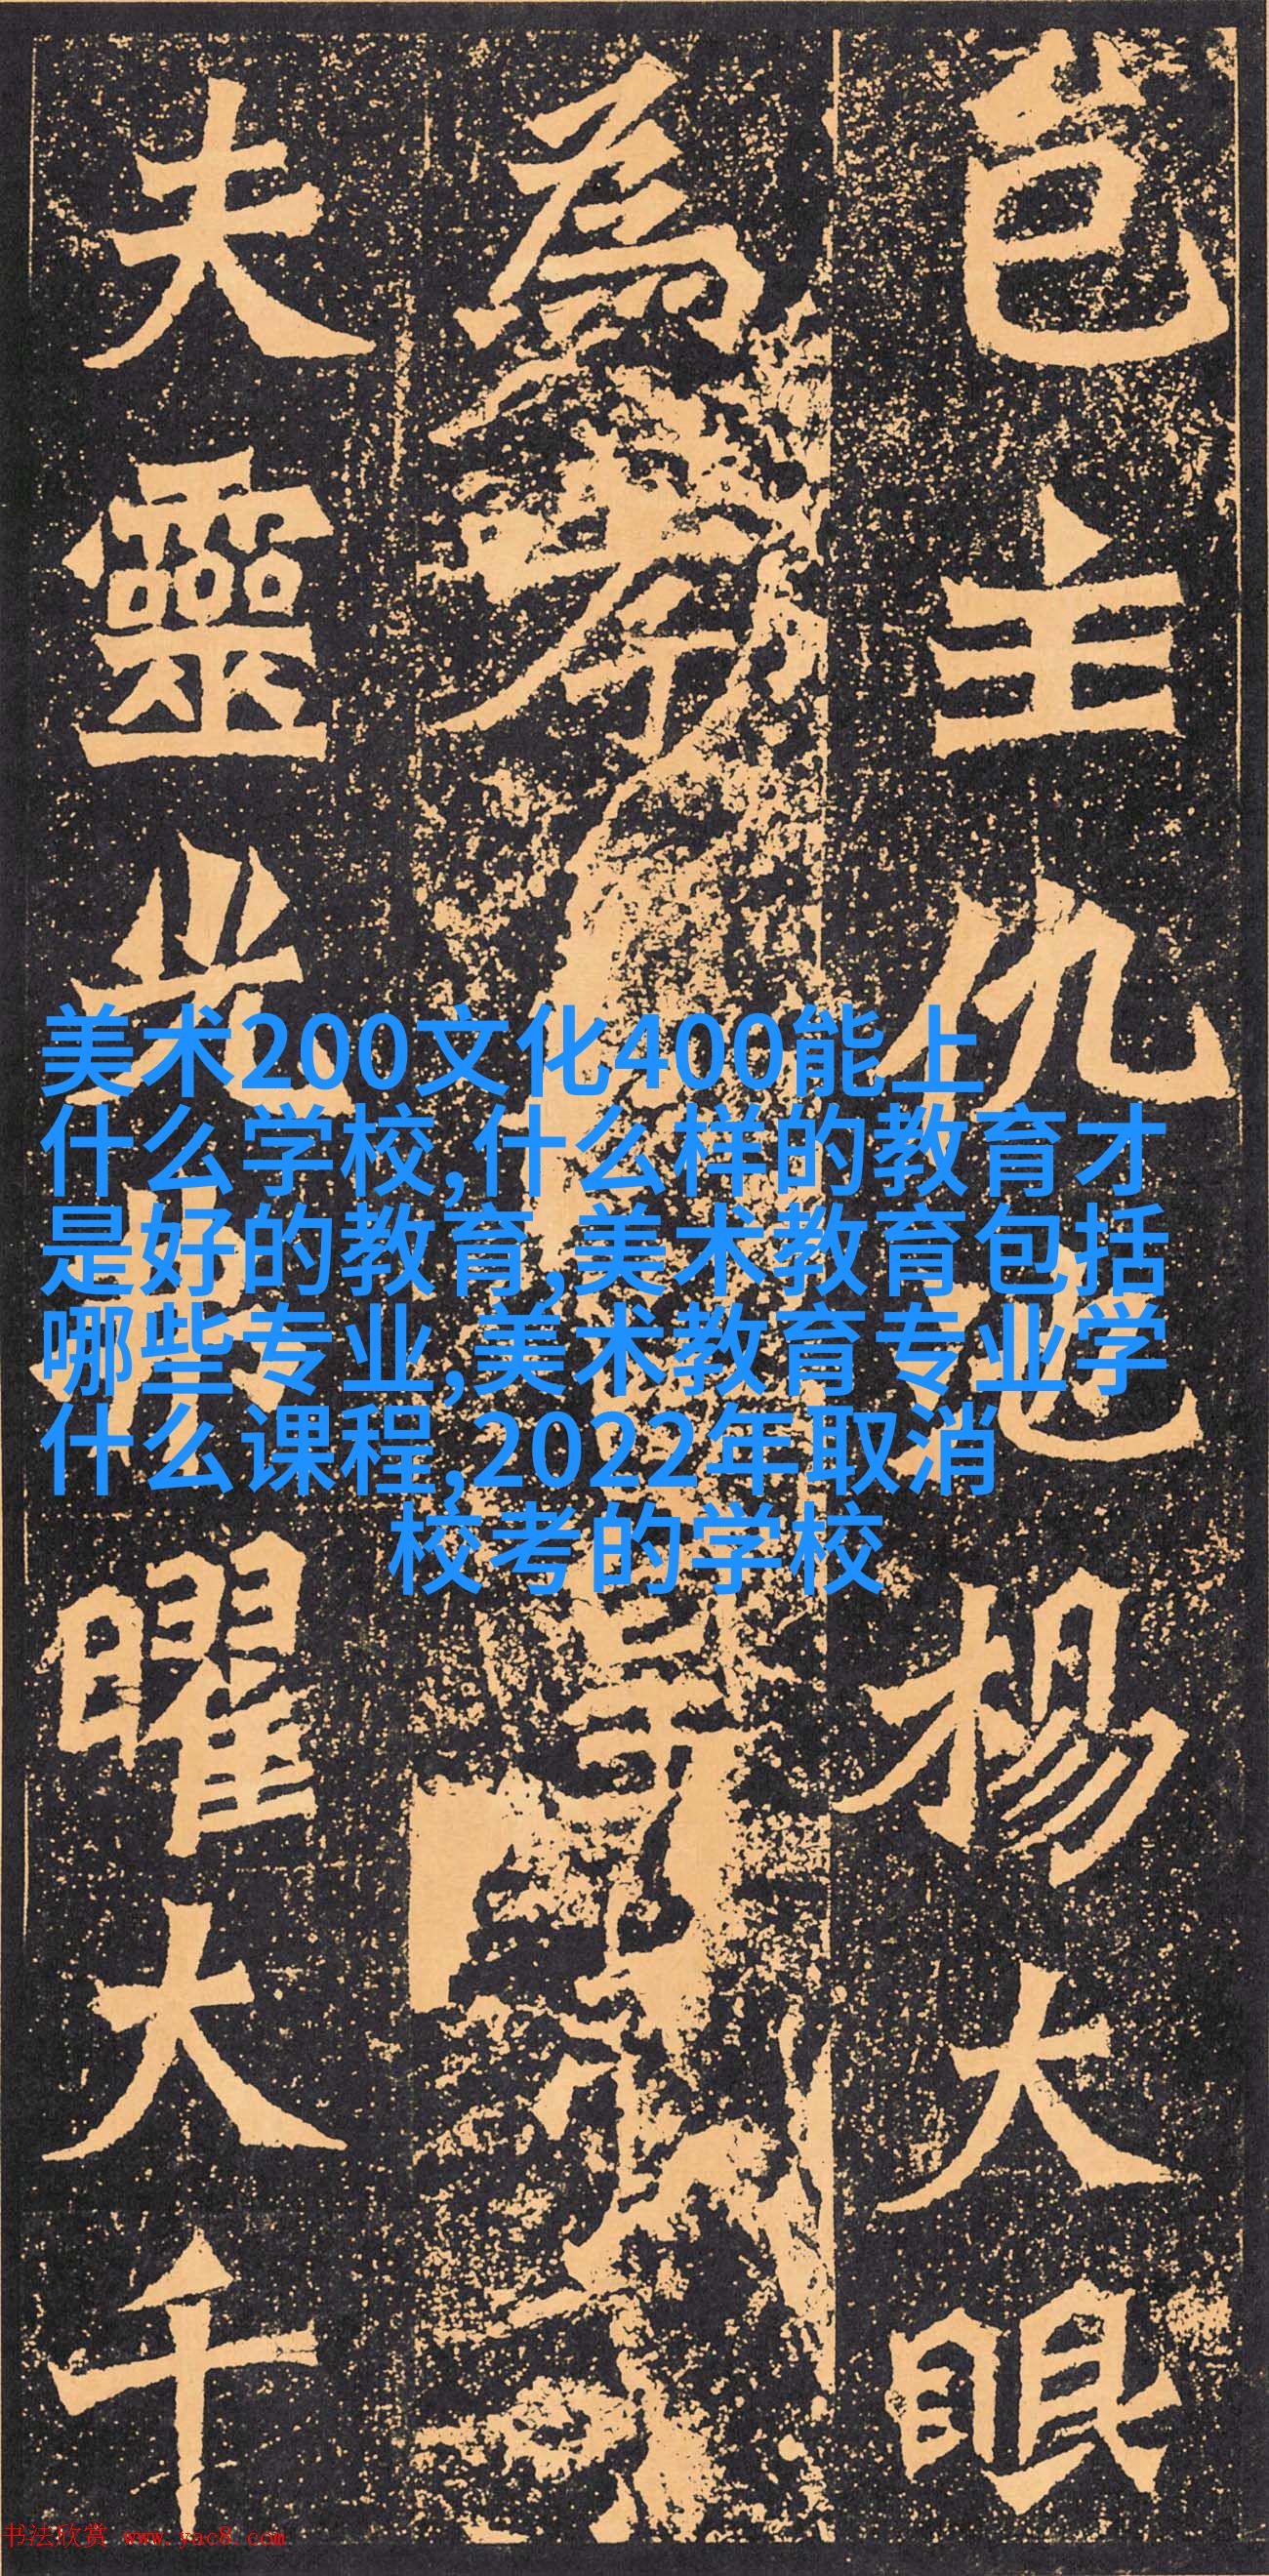 邑主仇池楊大眼
為孝
夫靈光弗曜大千
美术200文化400能上
什么学校,什么样的教育才
是好的教育,美术教育包括
哪些专业,美术教育专业学
什么课程,2022年取消
校考的学校
书法欣赏 www.yac8.com